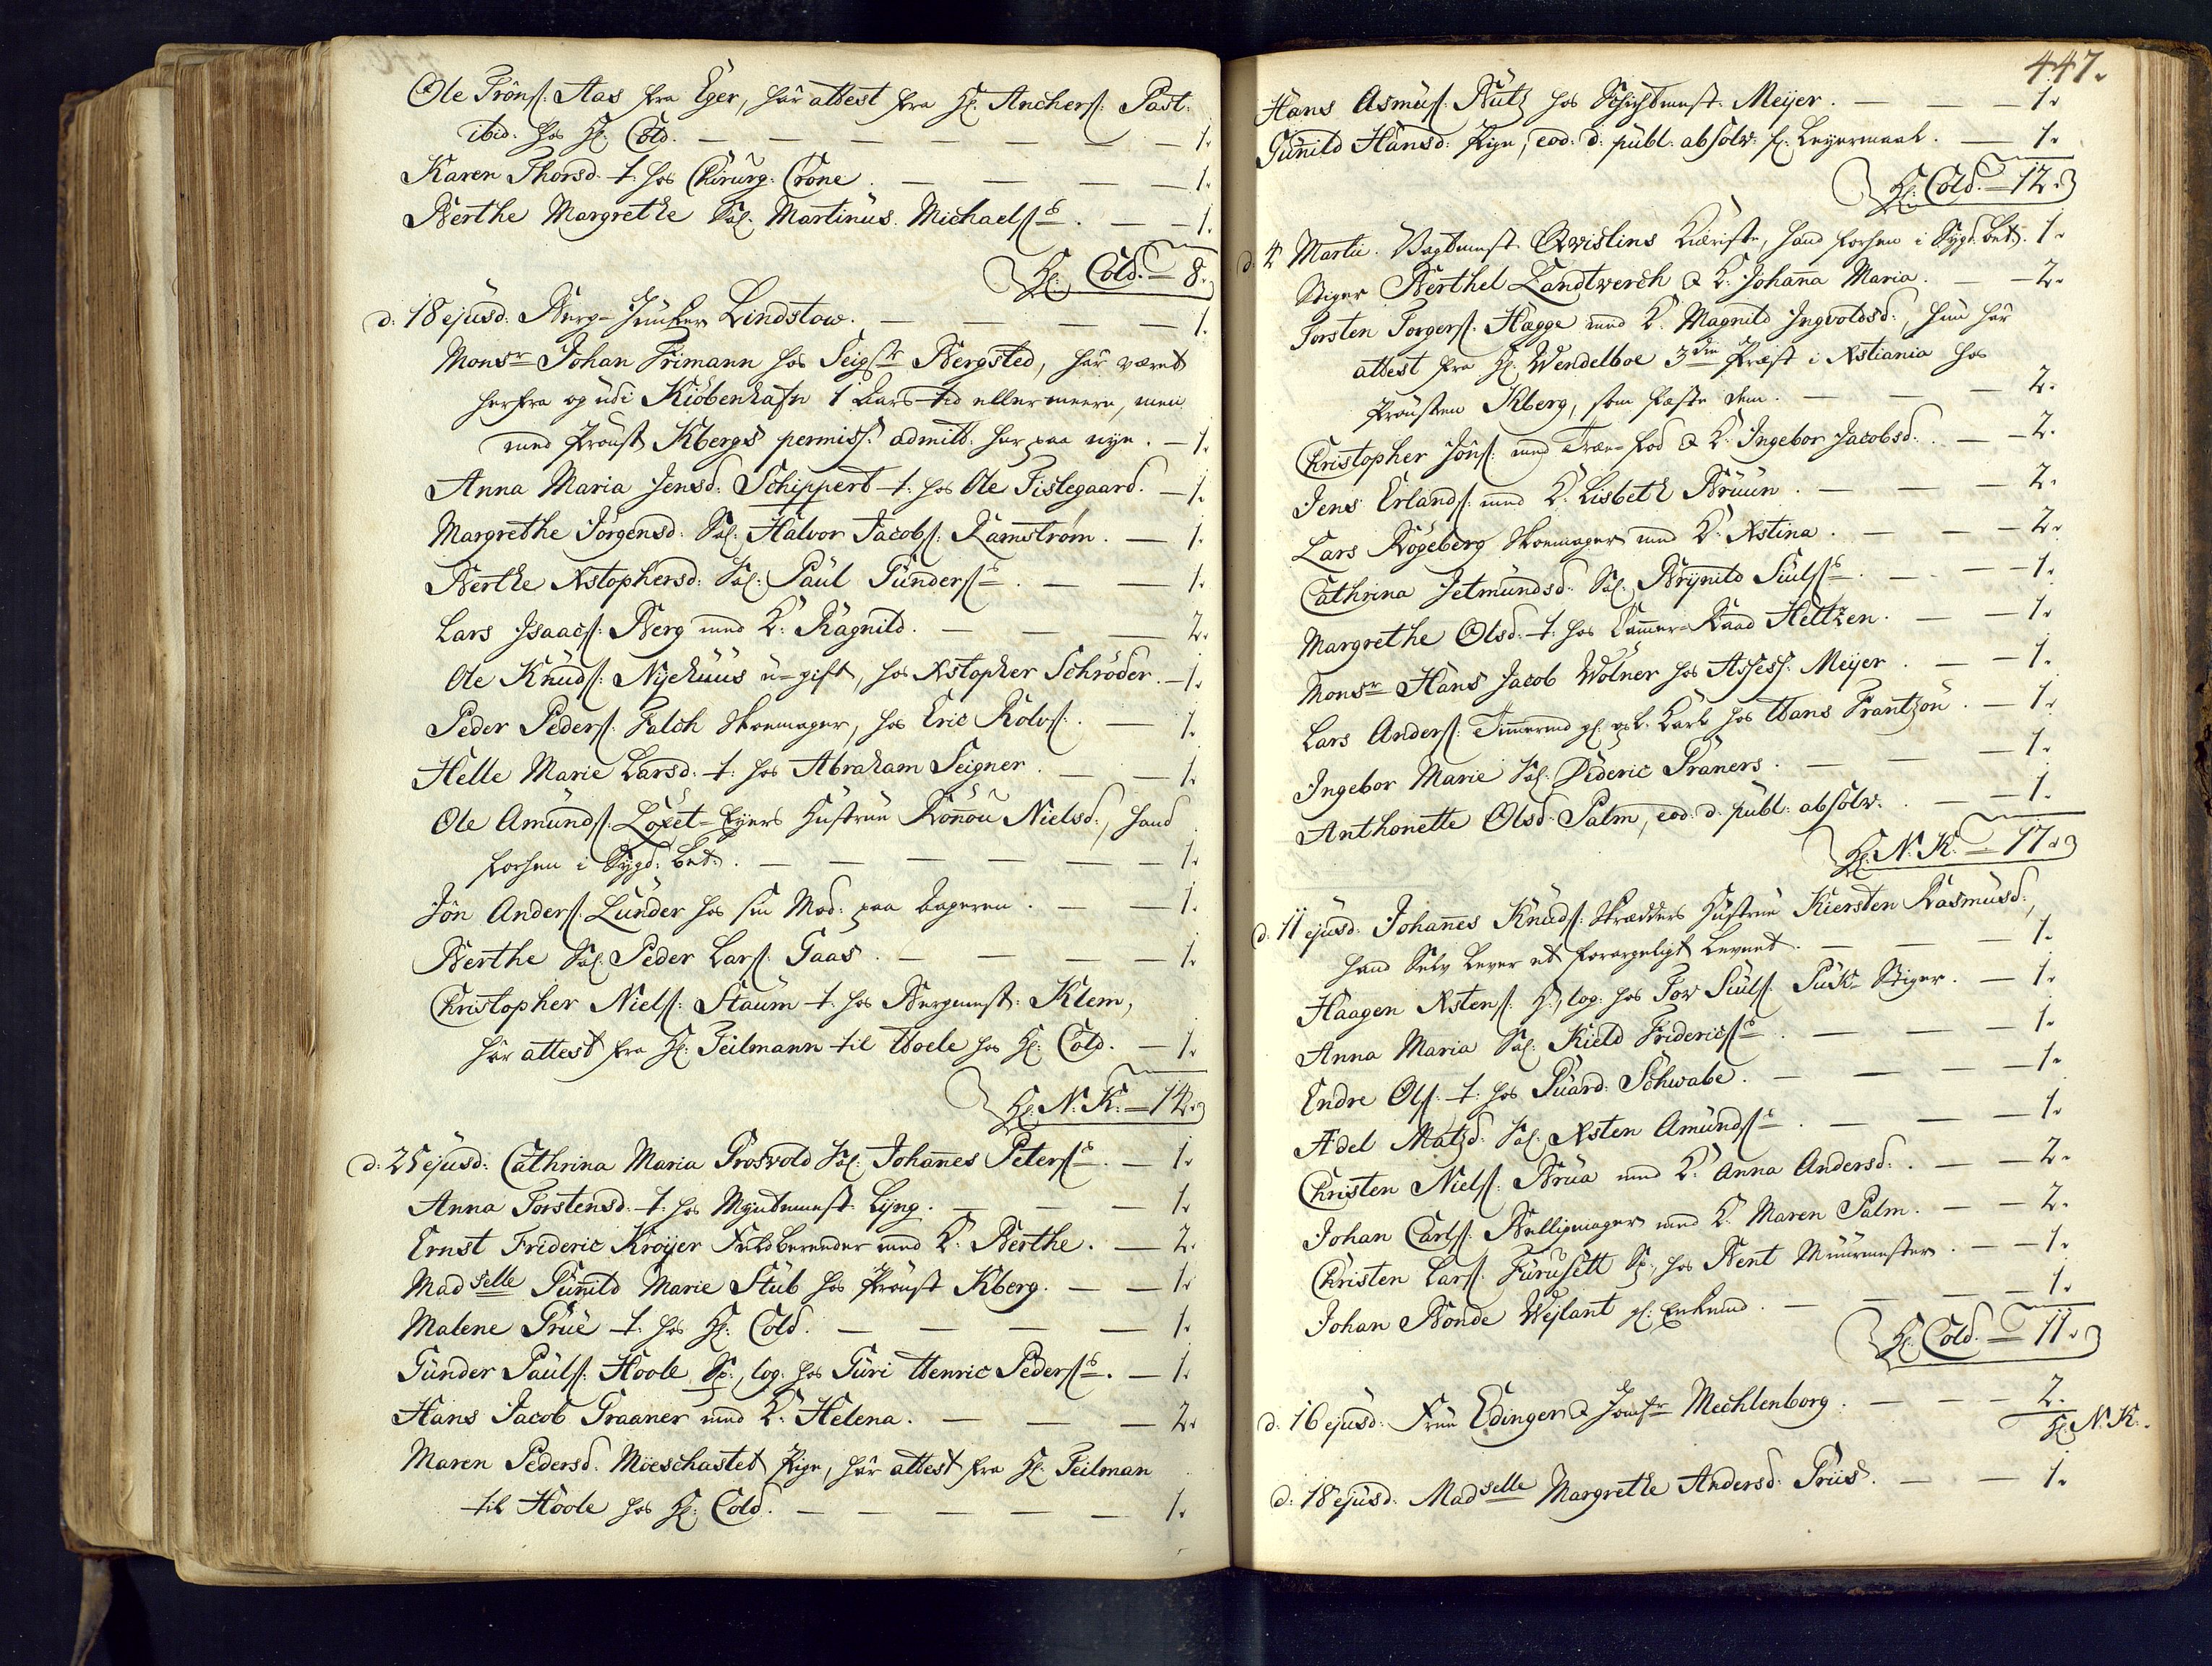 Ole Tröns: Aas fra Eger, har attest fra Hr: Anchers: Past:
ibid. hos Hr: Cold. — 1.
Karen Thorsd. t: hos Chirurg: Crone. — 1.
Berthe Margrethe Sal. Martinus Michaels:s. — 1.
Hr: Cold. — 8.
d. 18 ejusd: Berg-Juncker Lindstow. — 1.
Monsr Johan Frimann hos Bergsted, har været
herfra og udi Kiöbenhafn 1 Aars tid eller meere, men
med Proust Kbergs permiss: admitt: her paa nye. — 1.
Anna Maria Jensd: Schippert t: hos Ole Fislegaard. — 1.
Margrethe Jörgensd: Sal: Halvor Jacobs: Ramström. — 1.
Berthe Xstophersd: Sal: Paul Gunders:s. — 1.
Lars Isaacs: Berg med K: Ragnild. — 2.
Ole Knuds: Nyehuus u-gift, hos Xstopher Schröder. — 1.
Peder Peders: Falch Skoemager, hos Eric Rolvs:. — 1.
Helle Marie Larsd. t: hos Abraham Seigner. — 1.
Ole Amunds: Hustrue Rönou Nielsd:, hand
forhen i Sygd: bet:. — 1.
Jön Anders: Lunder hos sin Mod: paa — 1.
Berthe Sal. Peder Lars: Gaas. — 1.
Christopher Niels: Staum t: hos Bergmest: Klem,
har attest fra Hr: Feilmann til Hoele hos Hr: Cold. — 1.
Hr: N: K: — 14.
d. 25 ejusd: Cathrina Maria Grosvold Sal: Johannes Peters:s. — 1.
Anna Torstensd. t: hos Myntmest: Lyng. — 1.
Ernst Frideric Kroyer Feldbereder med K: Berthe. — 2.
Madselle Gunnild Marie Stub hos Proust Kberg. — 1.
Malene Grue t: hos Hr: Cold. — 1.
Gunder Pauls: Hoole Sp:, log: hos Guri Henric Peders:s. — 1.
Hans Jacob Graaner med K: Helena. — 2.
Maren Pedersd. Möeschastet Pige, har attest fra Hr: Feilman
til Hoole hos Hr: Cold. — 1.
447.
Hans Asmus: Butz hos Schichtmest: Meyer. — 1.
Gunild Hansd: Pige, eod: d: publ: absolv: f: Leyermaal. — 1.
Hr: Cold. — 12.
d. 4 Martii. Vagtmest: Qvislins Kiæriste, hand forhen i Sygd: bet:. 1.
Stiger Berthel Landtwerch & K: Johanna Maria. — 2.
Torsten Torgers: Hægge med K: Magnild Ingvoldsd:, hun har
attest fra Hr: Wendelboe 3die Præst i Xstiania hos
Prousten Kberg, som fæste dem. — 2.
Christopher Jöns: med Træe-fod & K: Ingebor Jacobsd:. — 2.
Jens Erlands: med K: Lisbeth Bruun. — 2.
Lars Rögeberg Skoemager med K: Xstina. — 2.
Cathrina Jetmundsd: Sal: Brynild Siuls:s. — 1.
Margrethe Olsd: t: hos Cammer-Raad Heltzen. — 1.
Monsr Hans Jacob Wölner hos Assess: Meyer. — 1.
Lars Anders: Timermd gl: Karl hos Hans Frantzön. — 1.
Ingebor Marie Sal: Dideric Graners. — 1.
Anthonette Olsd: Palm, eod. d. publ: absolv:. — 1.
Hr: N: K: — 17.
d. 11 ejusd: Johannes Knuds: Skrædders Hustrue Kiersten Rasmusd:,
hand Selv lever et forargeligt Levnet. — 1.
Haagen Xstens: log: hos Tov Siuls: Puk-Stiger. — 1.
Anna Maria Sal: Kield Friderics:s. — 1.
Endre Ols: t: hos Guard: Schwabe. — 1.
Adel Matzd: Sal: Xsten Amunds:s. — 1.
Christen Niels: Brua med K: Anna Andersd:. — 2.
Johan Carls: Belligmager med K: Maren Palm. — 2.
Christen Lars: Furusett Sp:, hos Bent Muurmester. — 1.
Johan Bonde Weylant gl: Enkemd. — 1.
Hr: Cold. — 11.
d. 16 ejusd: Frue Edinger & Jomfr Mechlenborg. — 2.
Hr: N: K:.
d. 18 ejusd: Madselle Margrethe Andersd: Priis. — 1.